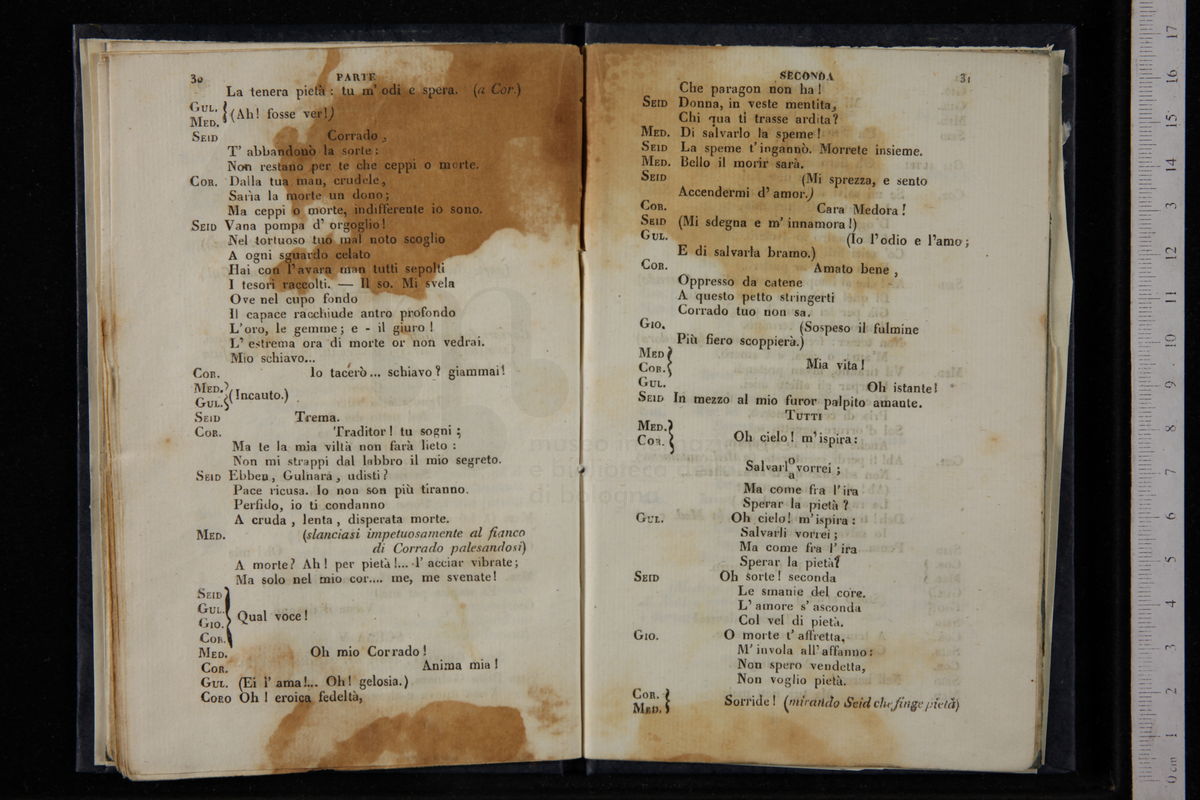 30 PARTE
La tenera pietà: tu m'odi e spera. (a Cor.)
GUL. } (Ah! fosse ver!)
MED.
SEID Corrado,
T' abbandonò la sorte:
Non restano per te che ceppi o morte.
COR. Dalla tua man, crudele,
Sarìa la morte un dono;
Ma ceppi o morte, indifferente io sono.
SEID Vana pompa d' orgoglio!
Nel tortuoso tuo mal noto scoglio
A ogni sguardo celato
Hai con l'avara man tutti sepolti
I tesori raccolti. — Il so. Mi svela
Ove nel cupo fondo
Il capace racchiude antro profondo
L'oro, le gemme; e - il giuro!
L' estrema ora di morte or non vedrai.
Mio schiavo...
COR. Io tacerò... schiavo? giammai!
MED. } (Incauto.)
GUL.
SEID Trema.
COR. Traditor! tu sogni;
Ma te la mia viltà non farà lieto:
Non mi strappi dal labbro il mio segreto.
SEID Ebben, Gulnara, udisti?
Pace ricusa. Io non son più tiranno.
Perfido, io ti condanno
A cruda, lenta, disperata morte.
MED. (slanciasi impetuosamente al fianco
di Corrado palesandosi)
A morte? Ah! per pietà!... l' acciar vibrate;
Ma solo nel mio cor.... me, me svenate!
SEID
GUL. } Qual voce!
GIO.
COR.
MED. Oh mio Corrado!
COR. Anima mia!
GUL. (Ei l' ama!... Oh! gelosia.)
CORO Oh! eroica fedeltà,
SECONDA 31
Che paragon non ha!
SEID Donna, in veste mentita,
Chi qua ti trasse ardita?
MED. Di salvarlo la speme!
SEID La speme t'ingannò. Morrete insieme.
MED. Bello il morir sarà.
SEID (Mi sprezza, e sento
Accendermi d' amor.)
COR. Cara Medora!
SEID (Mi sdegna e m' innamora!)
GUL. (Io l'odio e l'amo;
E di salvarla bramo.)
COR. Amato bene,
Oppresso da catene
A questo petto stringerti
Corrado tuo non sa.
GIO. (Sospeso il fulmine
Più fiero scoppierà.)
MED } Mia vita!
COR.
GUL. Oh istante!
SEID In mezzo al mio furor palpito amante.
TUTTI
MED. } Oh cielo! m'ispira:
COR.
Salvarl o/a vorrei;
Ma come fra l'ira
Sperar la pietà?
GUL. Oh cielo! m'ispira:
Salvarli vorrei;
Ma come fra l' ira
Sperar la pietà?
SEID Oh sorte! seconda
Le smanie del core.
L' amore s' asconda
Col vel di pietà.
GIO. O morte t' affretta,
M' invola all' affanno:
Non spero vendetta,
Non voglio pietà.
COR. } Sorride! (mirando Seid che finge pietà)
MED.